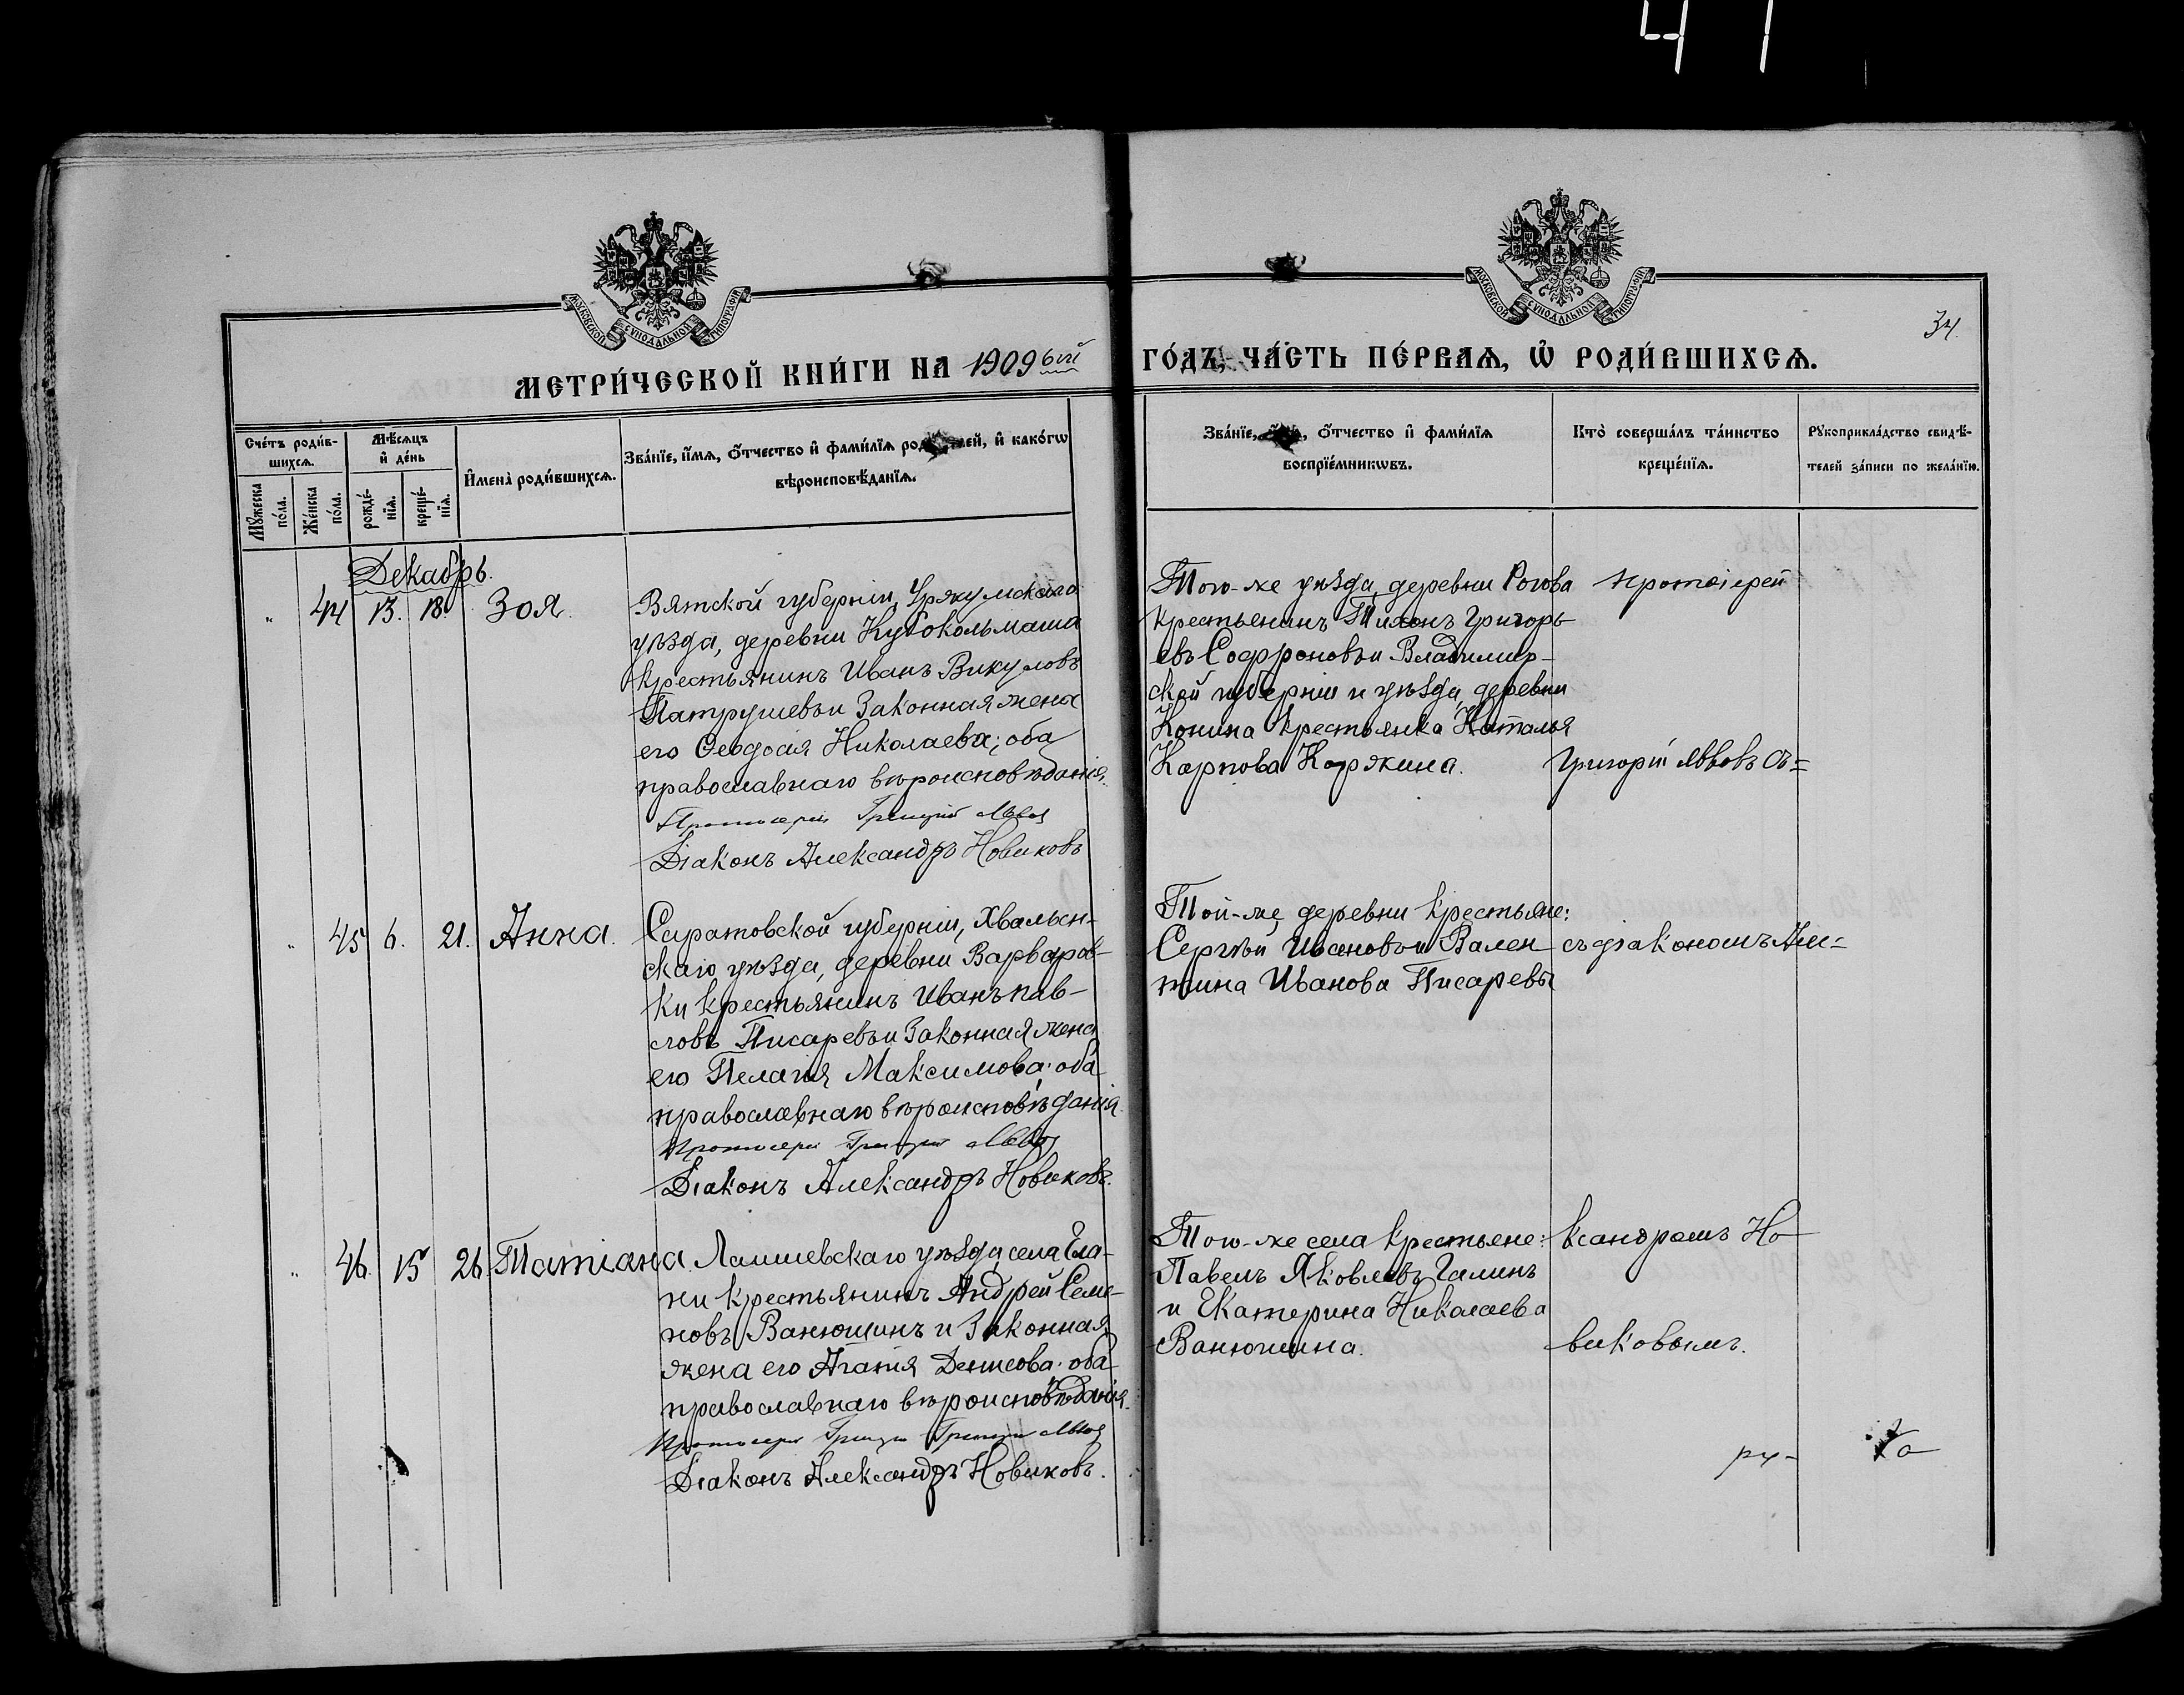 41
МОСКОВСКОЙ СѴНОДАЛЬНОЙ ТИПОГРАФІИ
МОСКОВСКОЙ СѴНОДАЛЬНОЙ ТИПОГРАФІИ
34.
МЕТРИ́ЧЕСКОЙ КНИ́ГИ НА 1909 ый ГО́ДЪ, ЧА́СТЬ ПЕ́РВАѦ, Ѡ҆ РОДИ́ВШИХСѦ.
Сче́тъ роди́в-
шихсѧ.
Мѣ́сѧцъ
и҆ де́нь
И҆мена̀ роди́вшихсѧ.
Зва́нїе, и҆́мѧ, ѻ҆́тчество и҆ фами́лїѧ родителей, и҆ како́гѡ
вѣроисповѣ́данїѧ.
Мꙋ́жеска
по́ла.
Же́нска
по́ла.
рожде́-
нїѧ.
креще́-
нїѧ.
Зва́нїе, и҆́мѧ, ѻ҆́тчество и҆ фами́лїѧ
воспрїе́мникѡвъ.
Кто̀ соверша́лъ та́инство
креще́нїѧ.
Рꙋкоприкла́дство свидѣ́-
телей за́писи по жела́нїю.
Декабрь.
" 44 13. 18. Зоя.
Вятской губерніи, Уржумскаго
уѣзда, деревни Кугокольмаша
крестьянинъ Иванъ Викуловъ
Патрушевъ и законная жена
его Ѳеодосія Николаева; оба
православнаго вѣроисповѣданія.
Протоіерей Григорій Львов
Діаконъ Александръ Новиковъ
Того-же уѣзда, деревни Рогова
крестьянинъ Тихонъ Григорь-
евъ Софроновъ и Владимир-
ской губерніи и уѣзда, деревни
Конина крестьянка Наталья
Карпова Карякина.
Протоіерей
Григорій Львовъ съ=
" 45 6. 21. Анна.
Саратовской губерніи, Хвалын-
скаго уѣзда, деревни Варваров-
ки крестьянинъ Иванъ Пав-
ловъ Писаревъ и законная жена
его Пелагія Максимова; оба
православнаго вѣроисповѣданія.
Протоіерей Григорій Львов
Діаконъ Александръ Новиковъ.
Той-же деревни крестьяне:
Сергѣй Ивановъ и Вален
тина Иванова Писаревы
съ діакономъ Але=
" 46. 15 26. Татіана.
Лаишевскаго уѣзда, села Ела-
ни крестьянинъ Андрей Семе-
новъ Ванюшинъ и законная
жена его Агафія Денисова; оба
православнаго вѣроисповѣданія.
Протоіерей Григорій Григорій Львов
Діаконъ Александръ Новиковъ.
Того-же села крестьяне:
Павелъ Яковлевъ Галинъ
и Екатерина Николаева
Ванюшина.
ксандромъ Но-
виковымъ.
ру-
ко-